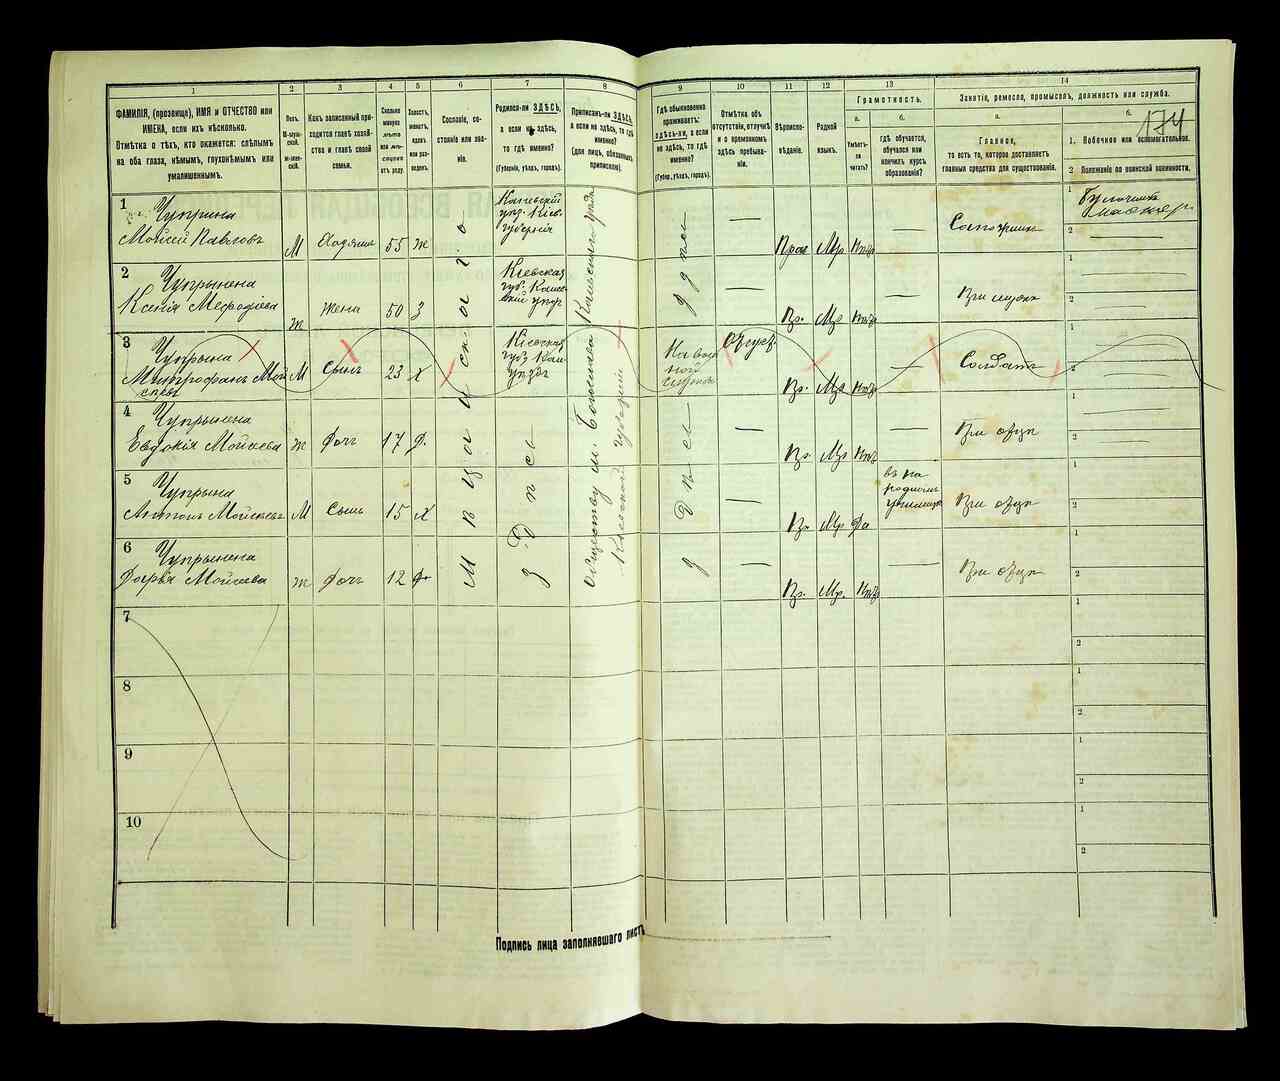 174
1
2
3
4
5
6
7
8
9
10
11
12
13
14
ФАМИЛІЯ, (прозвище), ИМЯ и ОТЧЕСТВО или
ИМЕНА, если ихъ нѣсколько.
Отмѣтка о тѣхъ, кто окажется: слѣпымъ
на оба глаза, нѣмымъ, глухонѣмымъ или
умалишеннымъ.
Полъ.
М-муж-
ской.
Ж-жен-
скій.
Какъ записанный при-
ходится главѣ хозяй-
ства и главѣ своей
семьи.
Сколько
минуло
лѣтъ
или мѣ-
сяцевъ
отъ роду.
Холостъ,
женатъ,
вдовъ
или раз-
веденъ.
Сословіе, со-
стояніе или зва-
ніе.
Родился-ли ЗДѢСЬ,
а если не здѣсь,
то гдѣ именно?
(Губернія, уѣздъ, городъ).
Приписанъ-ли ЗДѢСЬ,
а если не здѣсь, то гдѣ
именно?
(для лицъ, обязанныхъ
припискою).
Гдѣ обыкновенно
проживаетъ:
здѣсь-ли, а если
не здѣсь, то гдѣ
именно?
(Губер., уѣздъ, городъ).
Отмѣтка объ
отсутствіи, отлучкѣ
и о временномъ
здѣсь пребыва-
ніи.
Вѣроиспо-
вѣданіе.
Родной
языкъ.
Грамотность.
а.
Умѣетъ-
ли
читать?
б.
гдѣ обучается,
обучался или
кончилъ курсъ
образованія?
Занятіе, ремесло, промыселъ, должность или служба.
а.
Главное,
то есть то, которое доставляетъ
главныя средства для существованія.
б.
1. Побочное или вспомогательное.
2 Положеніе по воинской повинности.
1
Чуприна
Моисей Павловъ
М
Хозяинъ
55
ж
Каневскій
уѣз. Кіев.
губерніи
Прав
Мр
Нѣтъ
Сапожникъ
1
2
2
Чупрынена
Ксенія Мефодіева
ж
жена
50
З
Кіевская
губ. Кане-
вскій уѣзд
Пр.
Мр
Нѣтъ
При мужѣ
1
2
3
Чупрына
Митрофанъ Мой
сеевъ
М
Сынъ
23
х
Кіевская
губ Кан-
уѣздъ
На воен
ной
службѣ
Отсут.
Пр.
Мр
Нѣтъ
Солдатъ
1
2
4
Чупрынена
Евдокія Мойсеева
ж
Дочь
17
д.
Пр.
Мр
Нѣтъ
При отцѣ
1
2
5
Чупрына
Антонъ Мойсеевъ
М
Сынъ
15
х
Пр.
Мр
Да
въ на
родномъ
училищѣ
При отцѣ
1
2
6
Чупрынена
Дарья Мойсеева
ж
Дочь
12
д.
Пр.
Мр.
Нѣтъ
При отцѣ
1
2
Мѣщанинъ
Здѣсь
Обществу м. Богуслава Каневскаго уѣзда
Кіевской губерніи
Здѣсь
7
1
2
8
1
2
9
1
2
10
1
2
Подпись лица заполнявшаго листъ